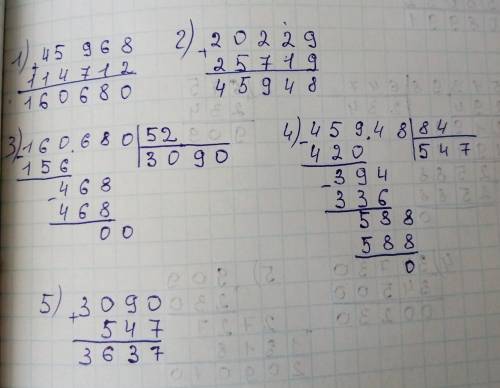 1) +45 968
114712
160680
2) +20229
25719
45948
3) -160.680 | 52
156 | 3090
-468
468
00
4) -459.48 | 84
420 | 547
-394
336
588
588
0
5) +3090
547
3637